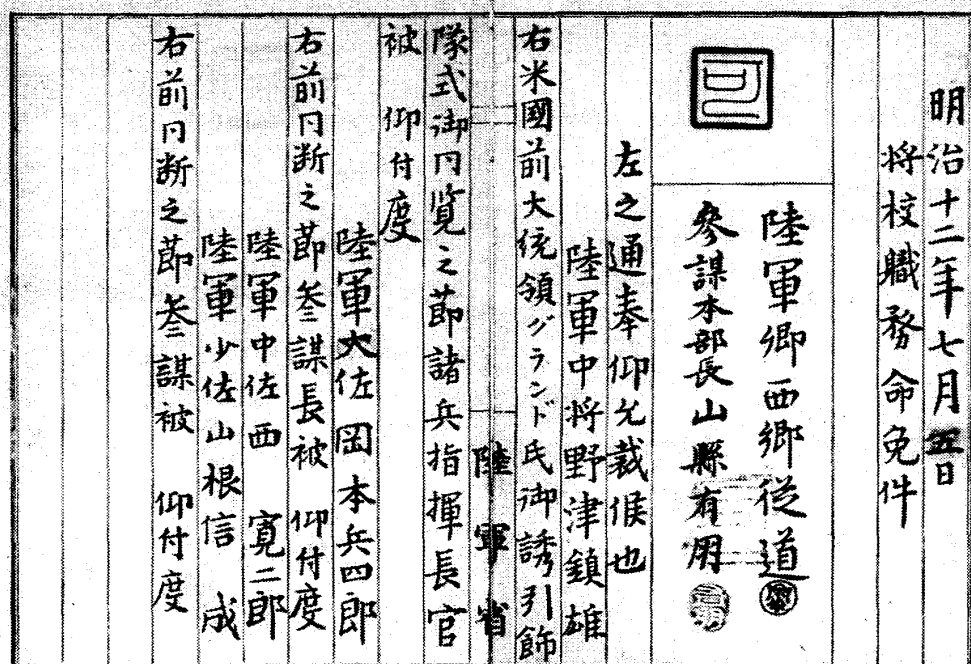 明治十二年七月五日
将校職務命免件
可
陸軍卿西郷従道
参謀本部長山縣有朋
左之通奉仰允裁候也
陸軍中将野津鎮雄
右米國前大統領グランド氏御誘引飾
陸軍省
隊式御円覧之節諸兵指揮長官
被 仰付度
陸軍大佐岡本兵四郎
右前円断之節参謀長被 仰付度
陸軍中佐西 寛二郎
陸軍少佐山根信成
右前円断之節参謀被 仰付度